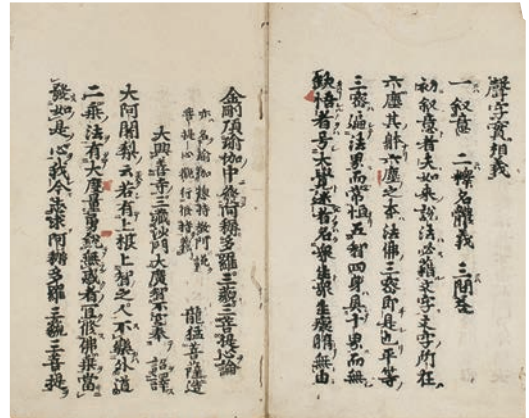 聲字實相義
一叙意 二釋名體義 三問荅
初叙意者夫如来説法必藉文字文字所在
六塵其躰六塵之本法佛三密即是也平等
三密遍法界而常恒五智四身具十界而無
欬悟者号大覺迷者名衆生衆生癡暗無由
金剛頂瑜伽中發阿耨多羅三藐三菩提心論
亦名瑜伽揔持教門説
菩提心觀行修持義
龍猛菩薩造
大興善寺三藏沙門大廣智不空奉 詔譯
大阿闍梨云若有上根上智之人不樂外道
二乗法有大度量勇鋭無惑者宜修佛乗當
發如是心我今志求阿耨多羅三藐三菩提